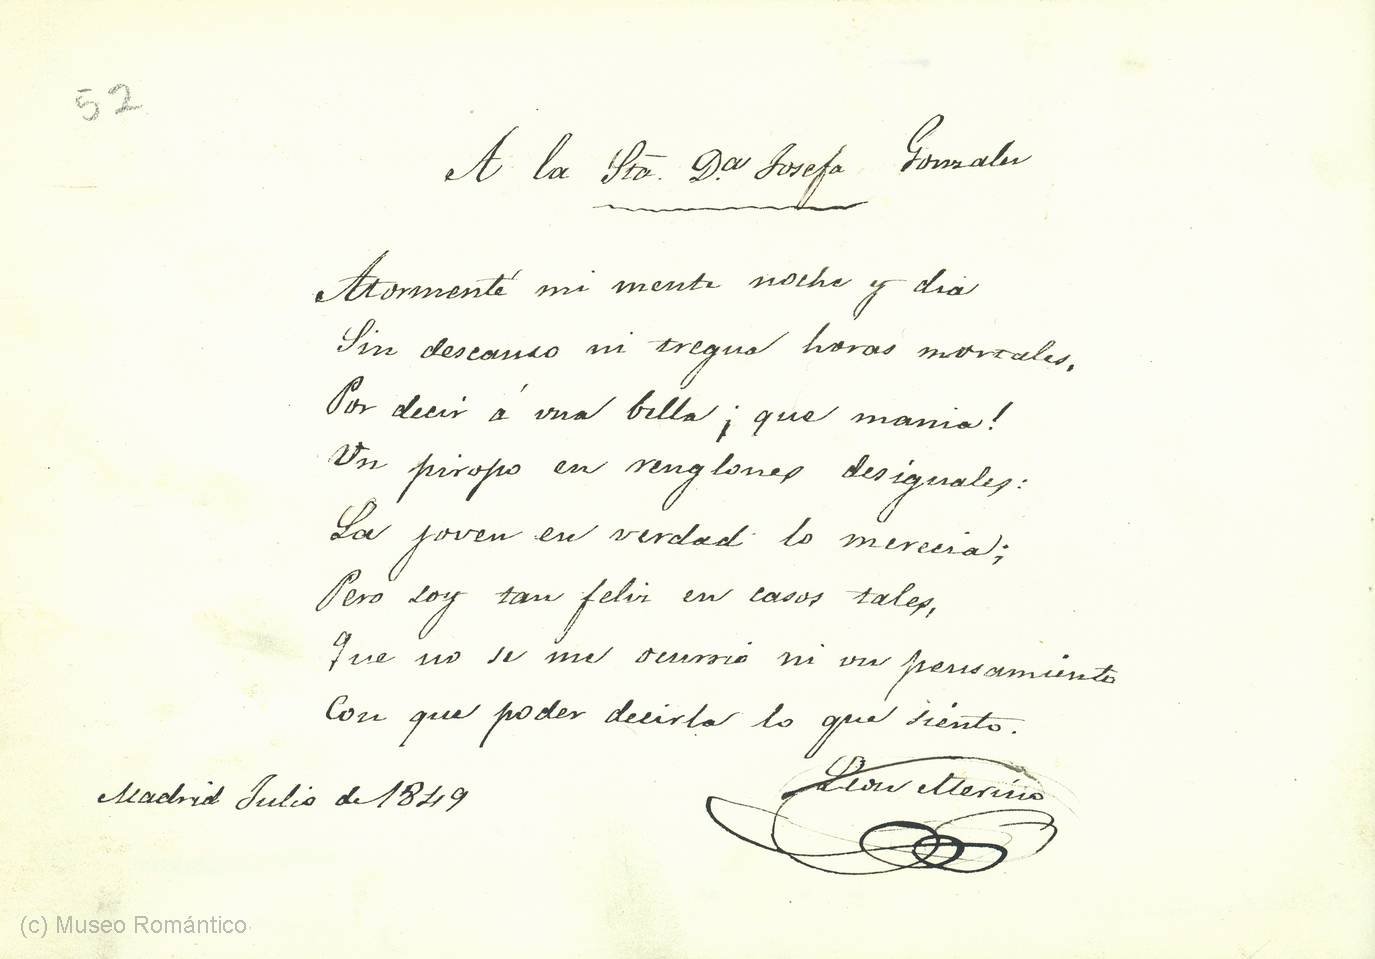 52
A la Sta. D.ª Josefa Gonzalez
Atormenté mi mente noche y dia
Sin descanso ni tregua horas mortales,
Por decir á una bella ¡que mania!
Un piropo en renglones desiguales:
La joven en verdad lo merecia;
Pero soy tan feliz en casos tales,
Que no se me ocurrió ni un pensamiento
Con que poder decirla lo que siento.
Leon Merino
Madrid Julio de 1849
(c) Museo Romántico